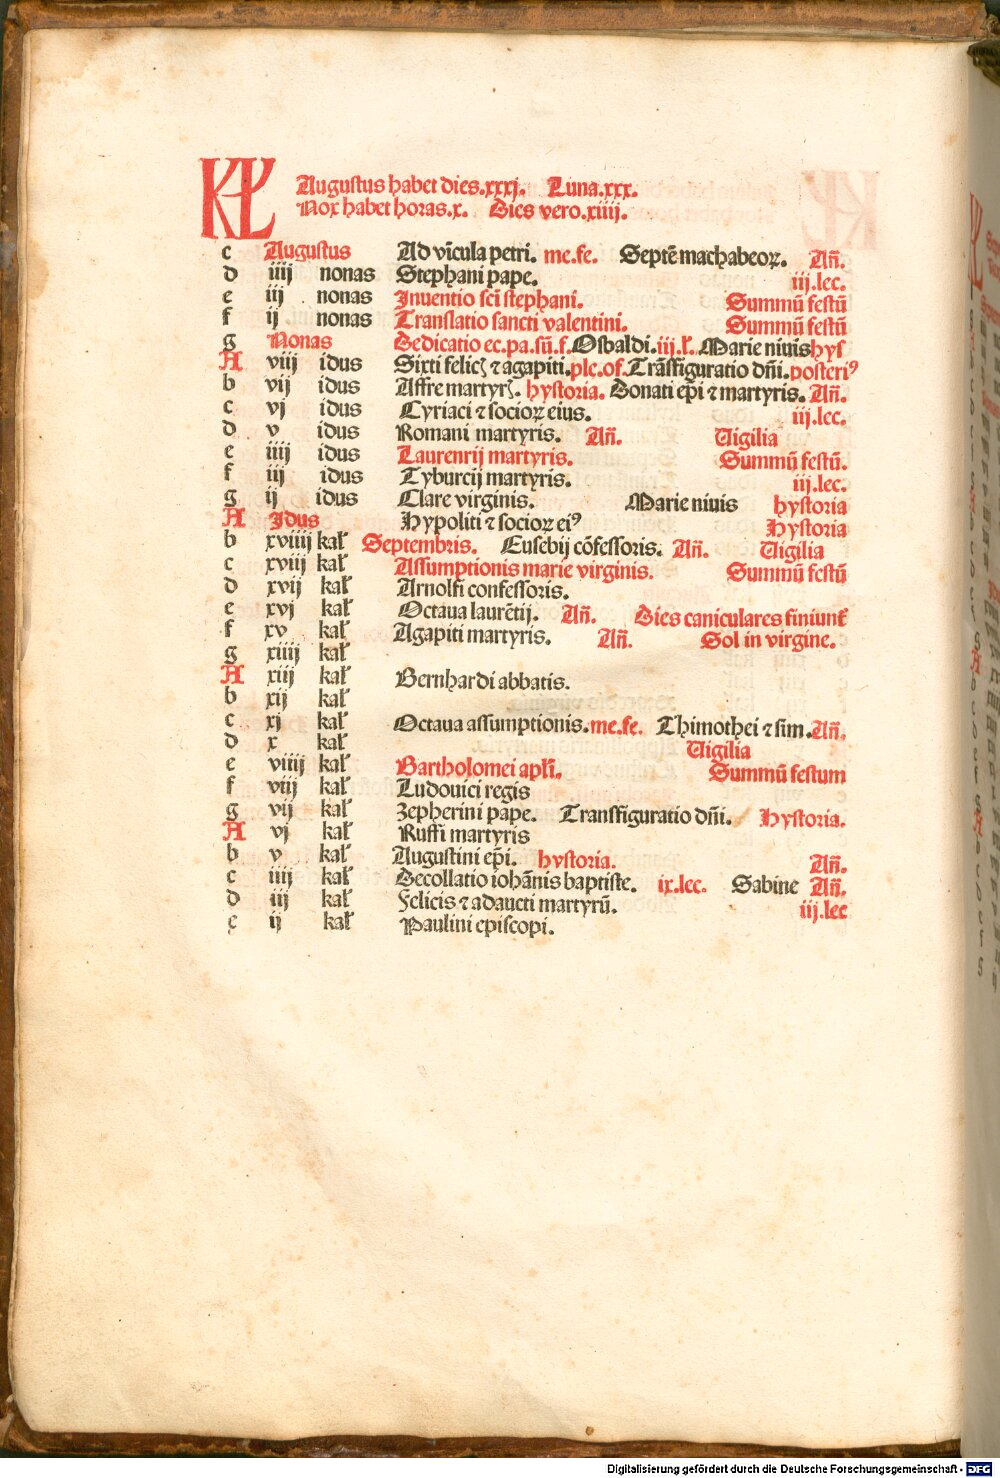 KL Augustus habet dies.xxxj. Luna.xxx.
Nox habet horas.x. Dies vero.xiiij.
c Augustus Ad vīcula petri. me.fe. Septē machabeoꝝ. Añ.
d iiij nonas Stephani pape. iij.lec.
e iij nonas Inuentio sci stephani. Summū festū
f ij nonas Translatio sancti valentini. Summū festū
g Nonas Dedicatio ec.pa.sū.f. Osbaldi.iij.l. Marie niuis hys
A viij idus Sixti felicꝭ ⁊ agapiti.plc.of. Trāsfiguratio dñi.posteriꝰ
b vij idus Affre martyrꝭ. hystoria. Donati ep̄i ⁊ martyris. Añ.
c vj idus Cyriaci ⁊ socioꝝ eius. iij.lec.
d v idus Romani martyris. Añ. Uigilia
e iiij idus Laurenrij martyris. Summū festū.
f iij idus Tyburcij martyris. iij.lec.
g ij idus Clare virginis. Marie niuis hystoria
A Idus Hypoliti ⁊ socioꝝ eiꝰ Hystoria
b xviiij kał Septembris. Eusebij cōfessoris. Añ. Uigilia
c xviij kał Assumptionis marie virginis. Summū festū
d xvij kał Arnolfi confessoris.
e xvj kał Octaua laurētij. Añ. Dies caniculares finiunt᷑
f xv kał Agapiti martyris. Añ. Sol in virgine.
g xiiij kał
A xiij kał Bernhardi abbatis.
b xij kał
c xj kał Octaua assumptionis.me.fe. Thimothei ⁊ sim.Añ.
d x kał Uigilia
e viiij kał Bartholomei apłi. Summū festum
f viij kał Ludouici regis
g vij kał Zepherini pape. Transfiguratio dñi. Hystoria.
A vj kał Ruffi martyris
b v kał Augustini ep̄i. hystoria. Añ.
c iiij kał Decollatio iohānis baptiste. ix.lec. Sabine Añ.
d iij kał Felicis ⁊ adaucti martyrū. iij.lec
e ij kał Paulini episcopi.
Digitalisierung gefördert durch die Deutsche Forschungsgemeinschaft - DFG